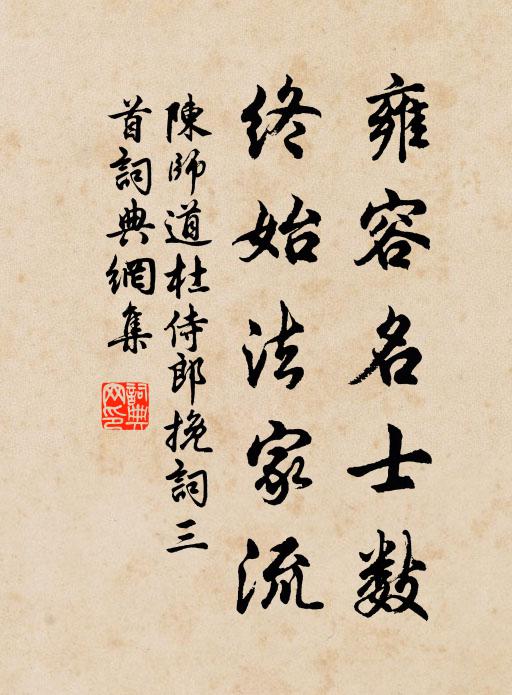 雍容名士数
终始法家流
陳師道杜侍郎挽詞三
首詞典網集
詞典
网印